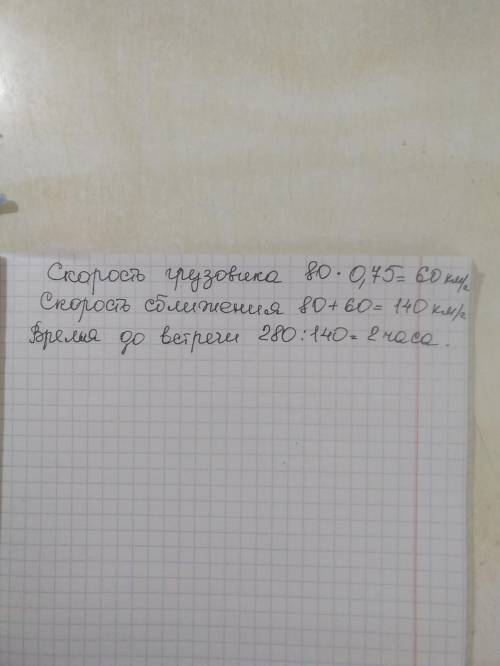 Скорость грузовика 80 · 0,75 = 60 км/ч
Скорость сближения 80 + 60 = 140 км/ч
Время до встречи 280 : 140 = 2 часа.